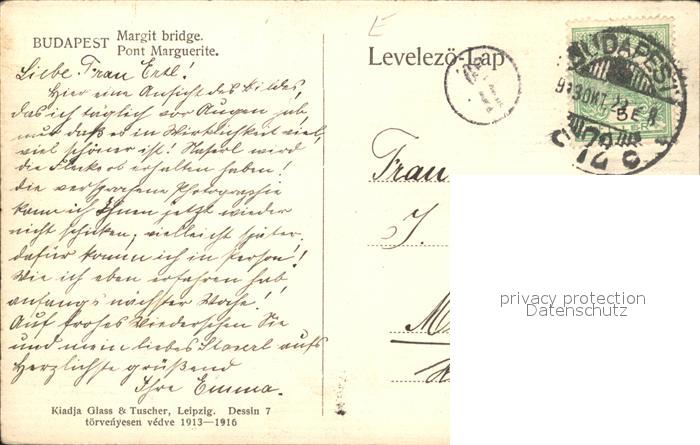 BUDAPEST Margit bridge.
Pont Marguerite.
Levelezö-Lap
BUDAPEST
913 OKT. 22
72
Liebe Frau Ertl!
Hier eine Ansicht des Bildes,
das ich täglich vor Augen hab,
nur daß es in Wirklichkeit viel,
viel schöner ist! wird
die ob erhalten haben!
die versprochene Photographie
kann ich Ihnen jetzt wieder
nicht schicken, vielleicht später,
dafür komm ich in Person!
Wie ich eben erfahren hab
anfangs nächster Woche!
Auf frohes Wiedersehen Sie
und mein liebes aufs
Herzlichste grüßend
Ihre Emma.
Frau
J.
M
Kiadja Glass & Tuscher, Leipzig. Dessin 7
törvenyesen védve 1913—1916
privacy protection
Datenschutz